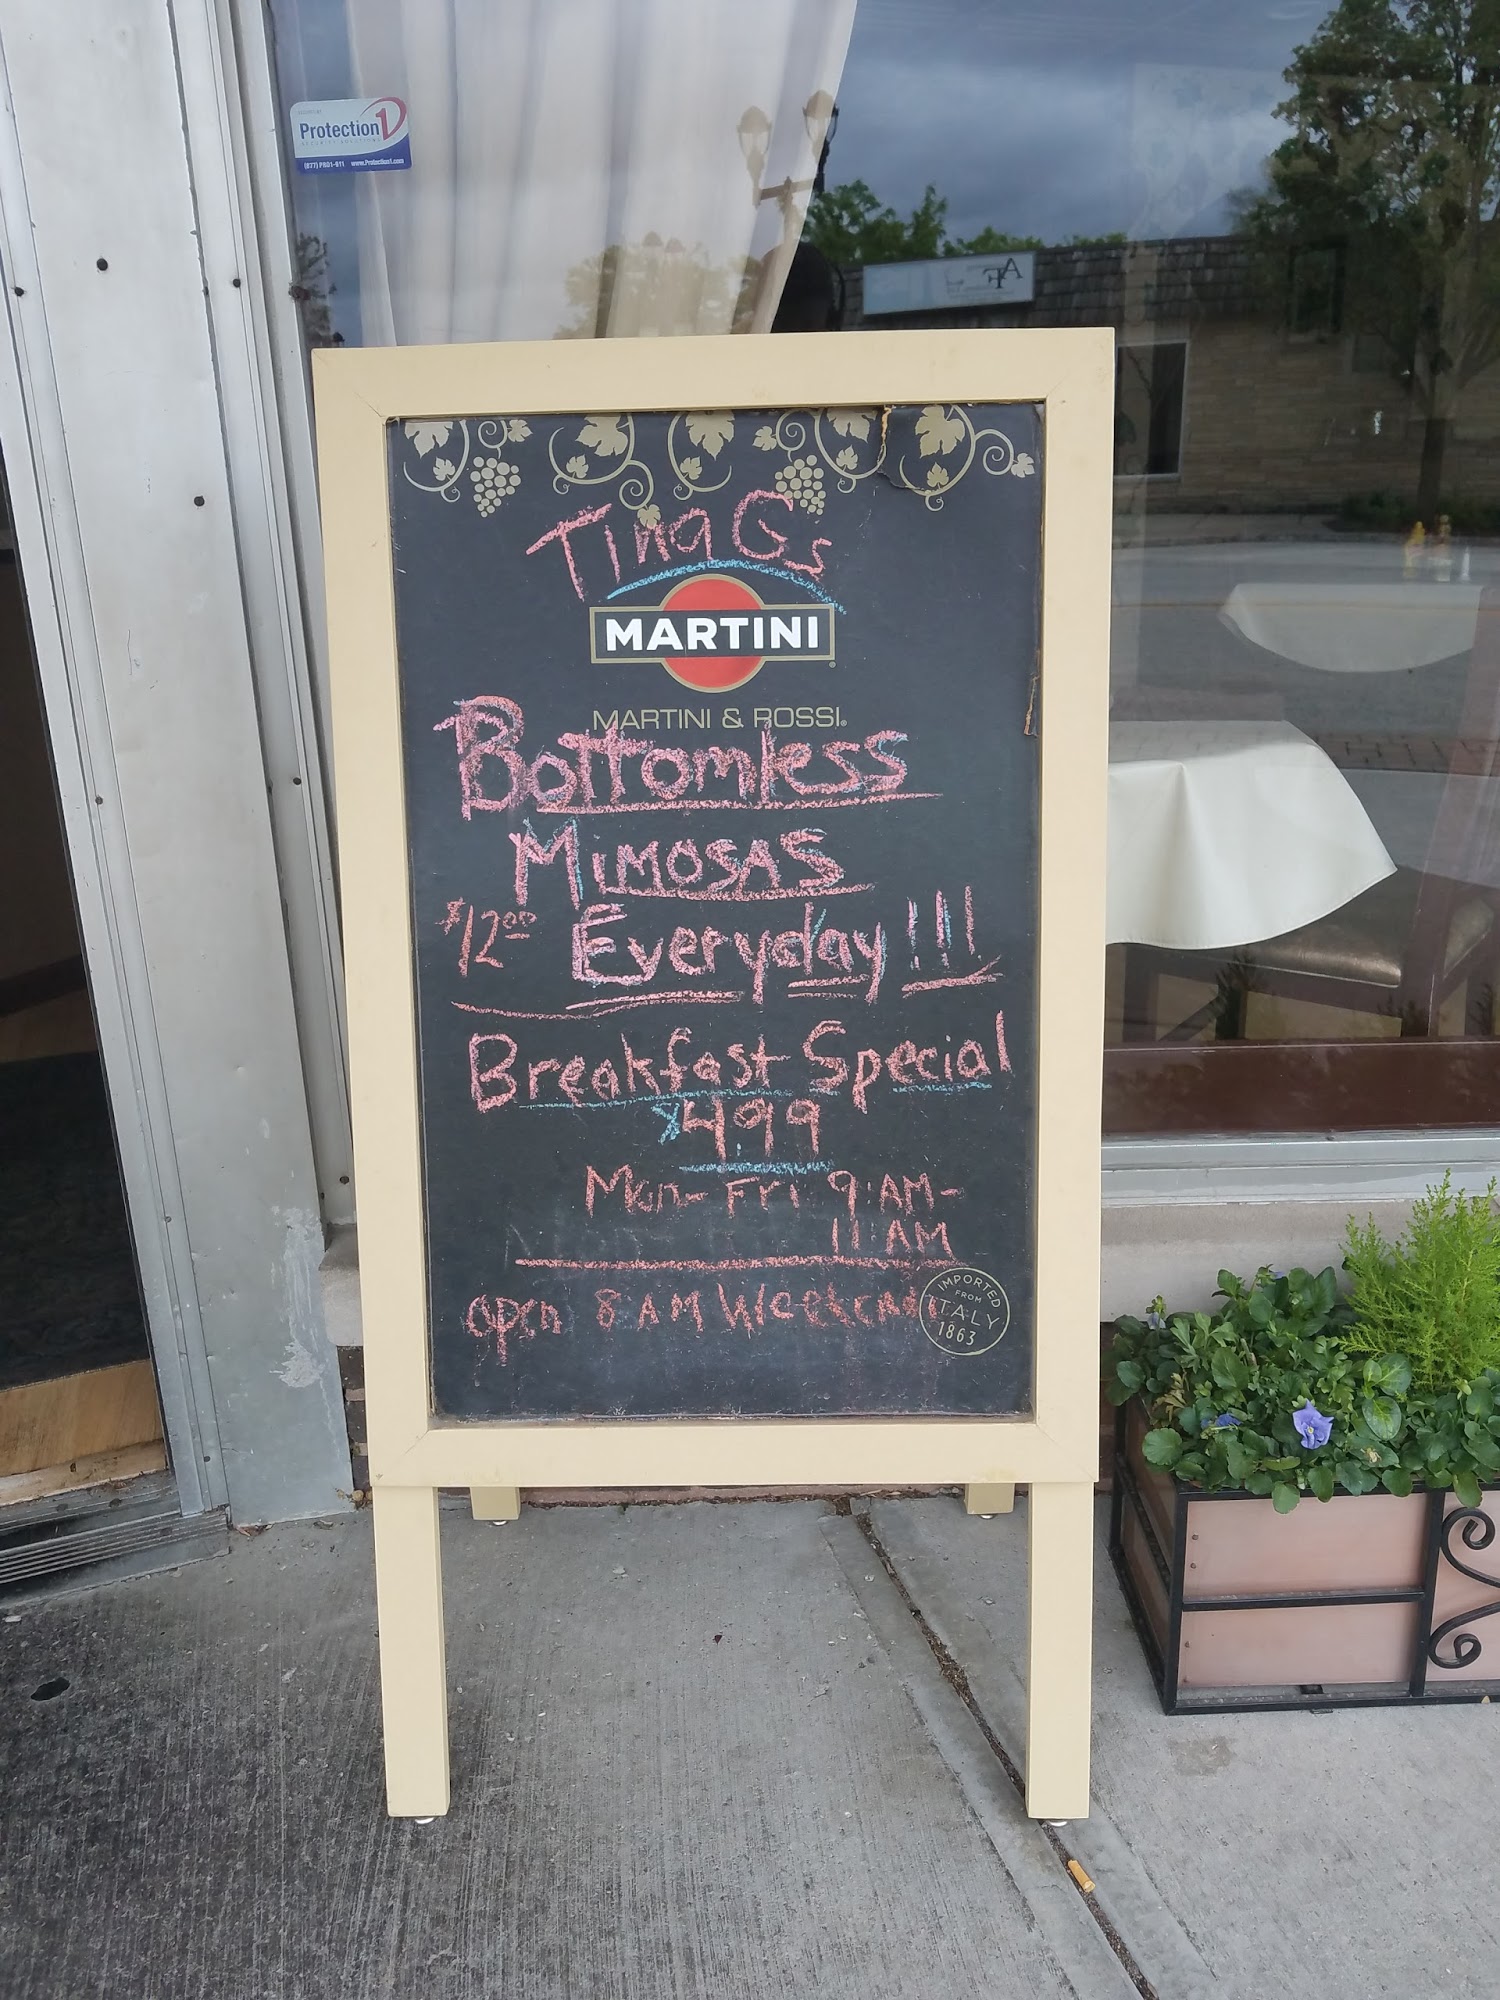 SECURED BY
Protection1
SECURITY SOLUTIONS
(877) PRO1-911 www.Protection1.com
Tina Gs
MARTINI®
MARTINI & ROSSI®
Bottomless
Mimosas
$12.00 Everyday!!!
Breakfast Special
$4.99
Mon-Fri 9:AM-
11:AM
open 8AM Weekends
IMPORTED
FROM
ITALY
1863